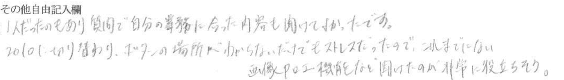 その他自由記入欄
1人だったのもあり質問で自分の業務に合った内容も聞けてよかったです。
2010に切り替わり、ボタンの場所がわからないだけでもストレスだったので、これまでにない
画像やの機能など聞けたのが非常に役立ちそう。